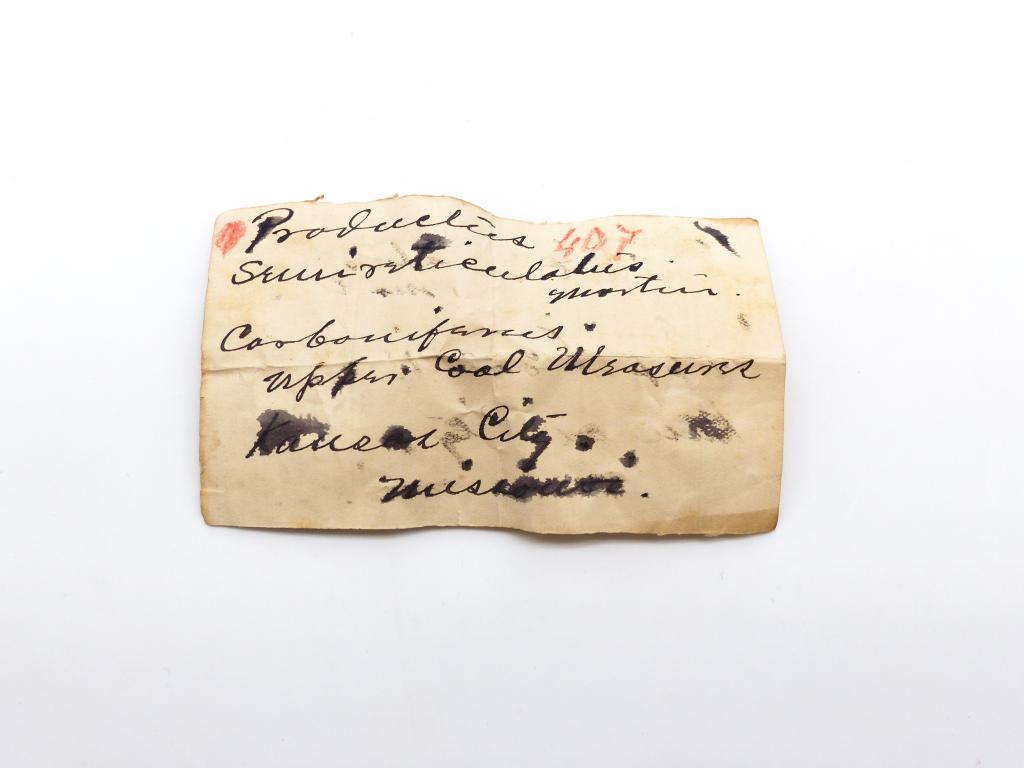 Productus 407
Semireticulatus.
Martin.
Carboniferous.
Upper Coal Measures
Kansas City.
Missouri.